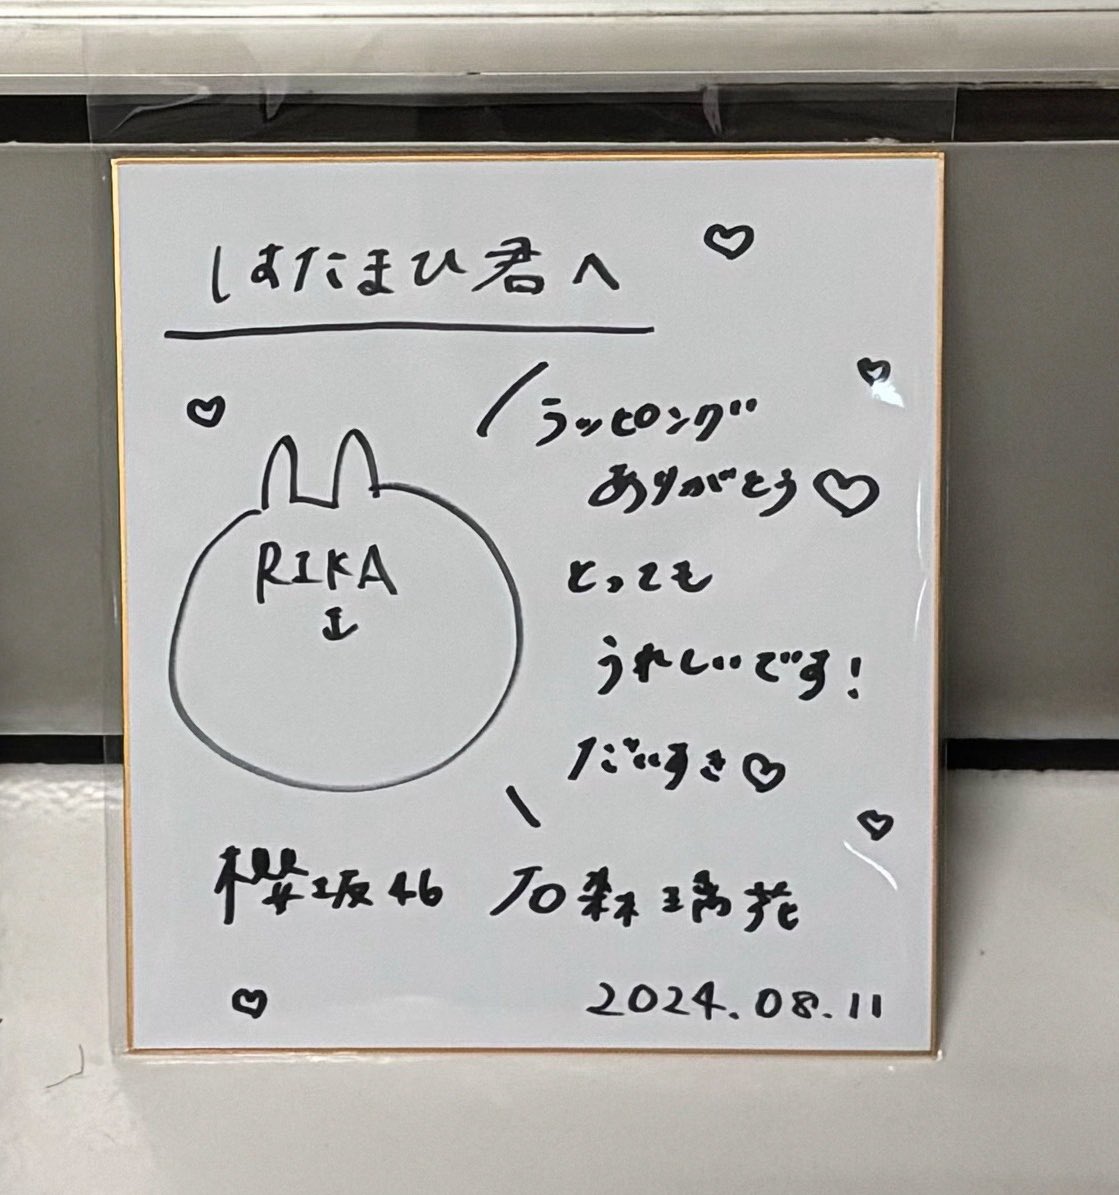 はたまひ君へ
ラッピング
ありがとう♡
とっても
うれしいです!
だいすき♡
RIKA
櫻坂46 石森璃花
2024.08.11